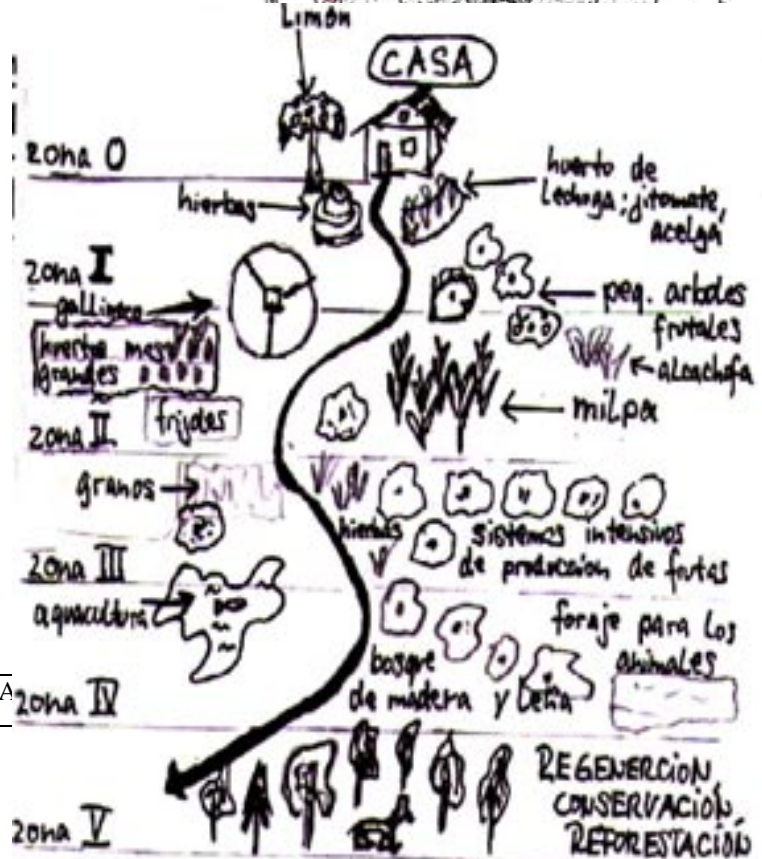 Limón
CASA
zona 0
hierbas
huerto de
Lechuga; jitomate,
acelga
zona I
gallinero
peq. arboles
frutales
huerta mas
grandes
alcachofa
milpa
frijoles
zona II
granos
hierbas
sistemas intensivos
de produccion de frutas
zona III
aquacultura
foraje para los
animales
bosque
de madera y Leña
zona IV
REGENERCION,
CONSERVACIÓN,
REFORESTACIÓN
zona V